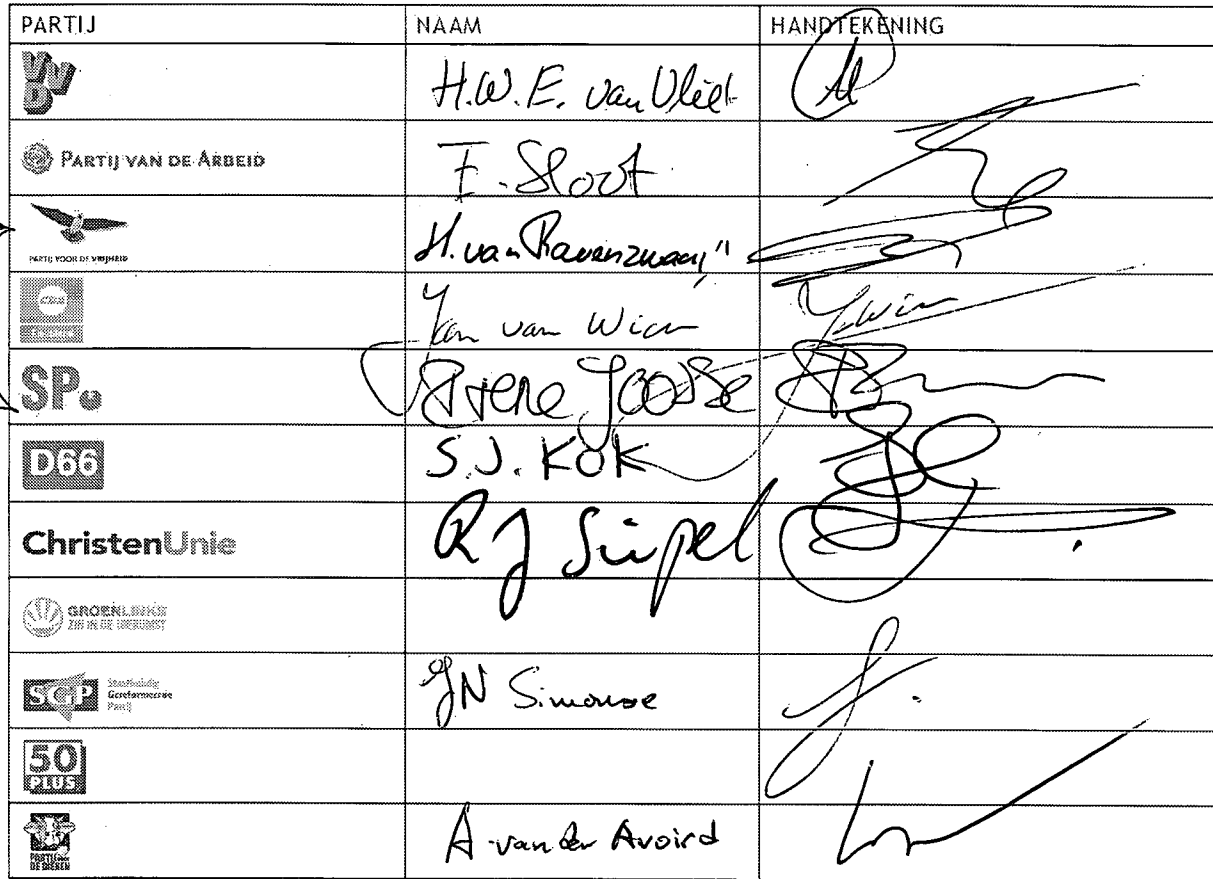 PARTIJ NAAM HANDTEKENING
VVD H.W.E. van Vliet
PARTIJ VAN DE ARBEID F. Sloot
PARTIJ VOOR DE VRIJHEID H. van Ravenzwaaij
Jan van Wier
SP. Joosse
D66 S.J. KOK
ChristenUnie RJ Seipel
GROENLINKS
SGP Staatkundig Gereformeerde Partij JN Simonse
50 PLUS
PARTIJ VOOR DE DIEREN A van der Avoird